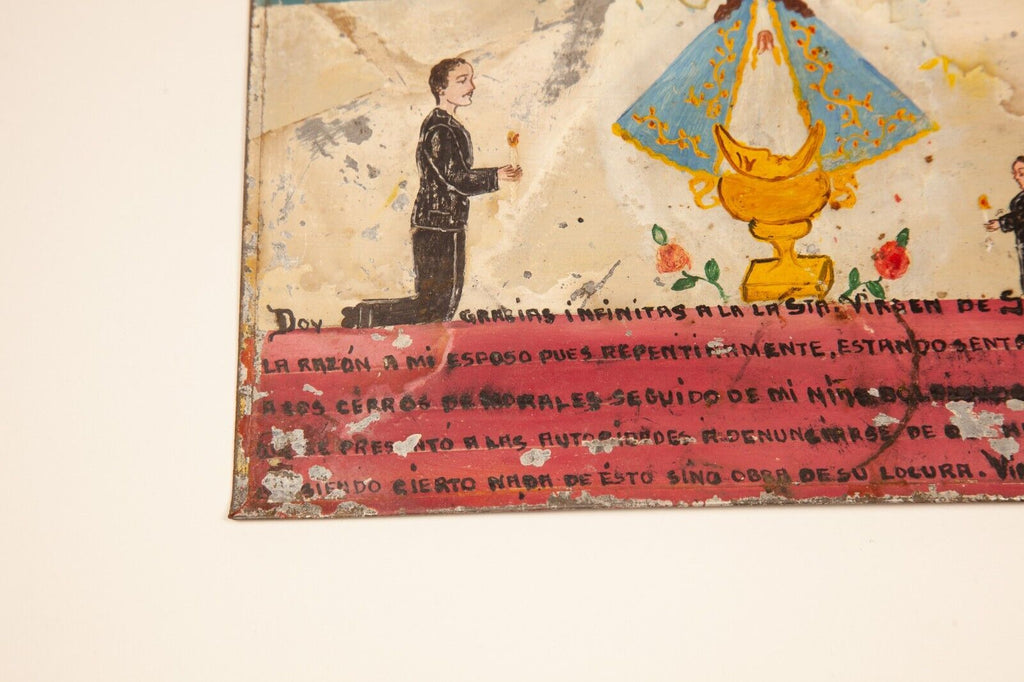 Doy GRACIAS INFINITAS A LA LA STA. VIRGEN DE S
LA RAZÓN A MI ESPOSO PUES REPENTINAMENTE, ESTANDO SENTA
A LOS CERROS DE MORALES SEGUIDO DE MI NIÑO
PRESENTÓ A LAS AUTORIDADES A DENUNCIARSE DE
SIENDO CIERTO NADA DE ÉSTO SINO OBRA DE SU LOCURA. VI